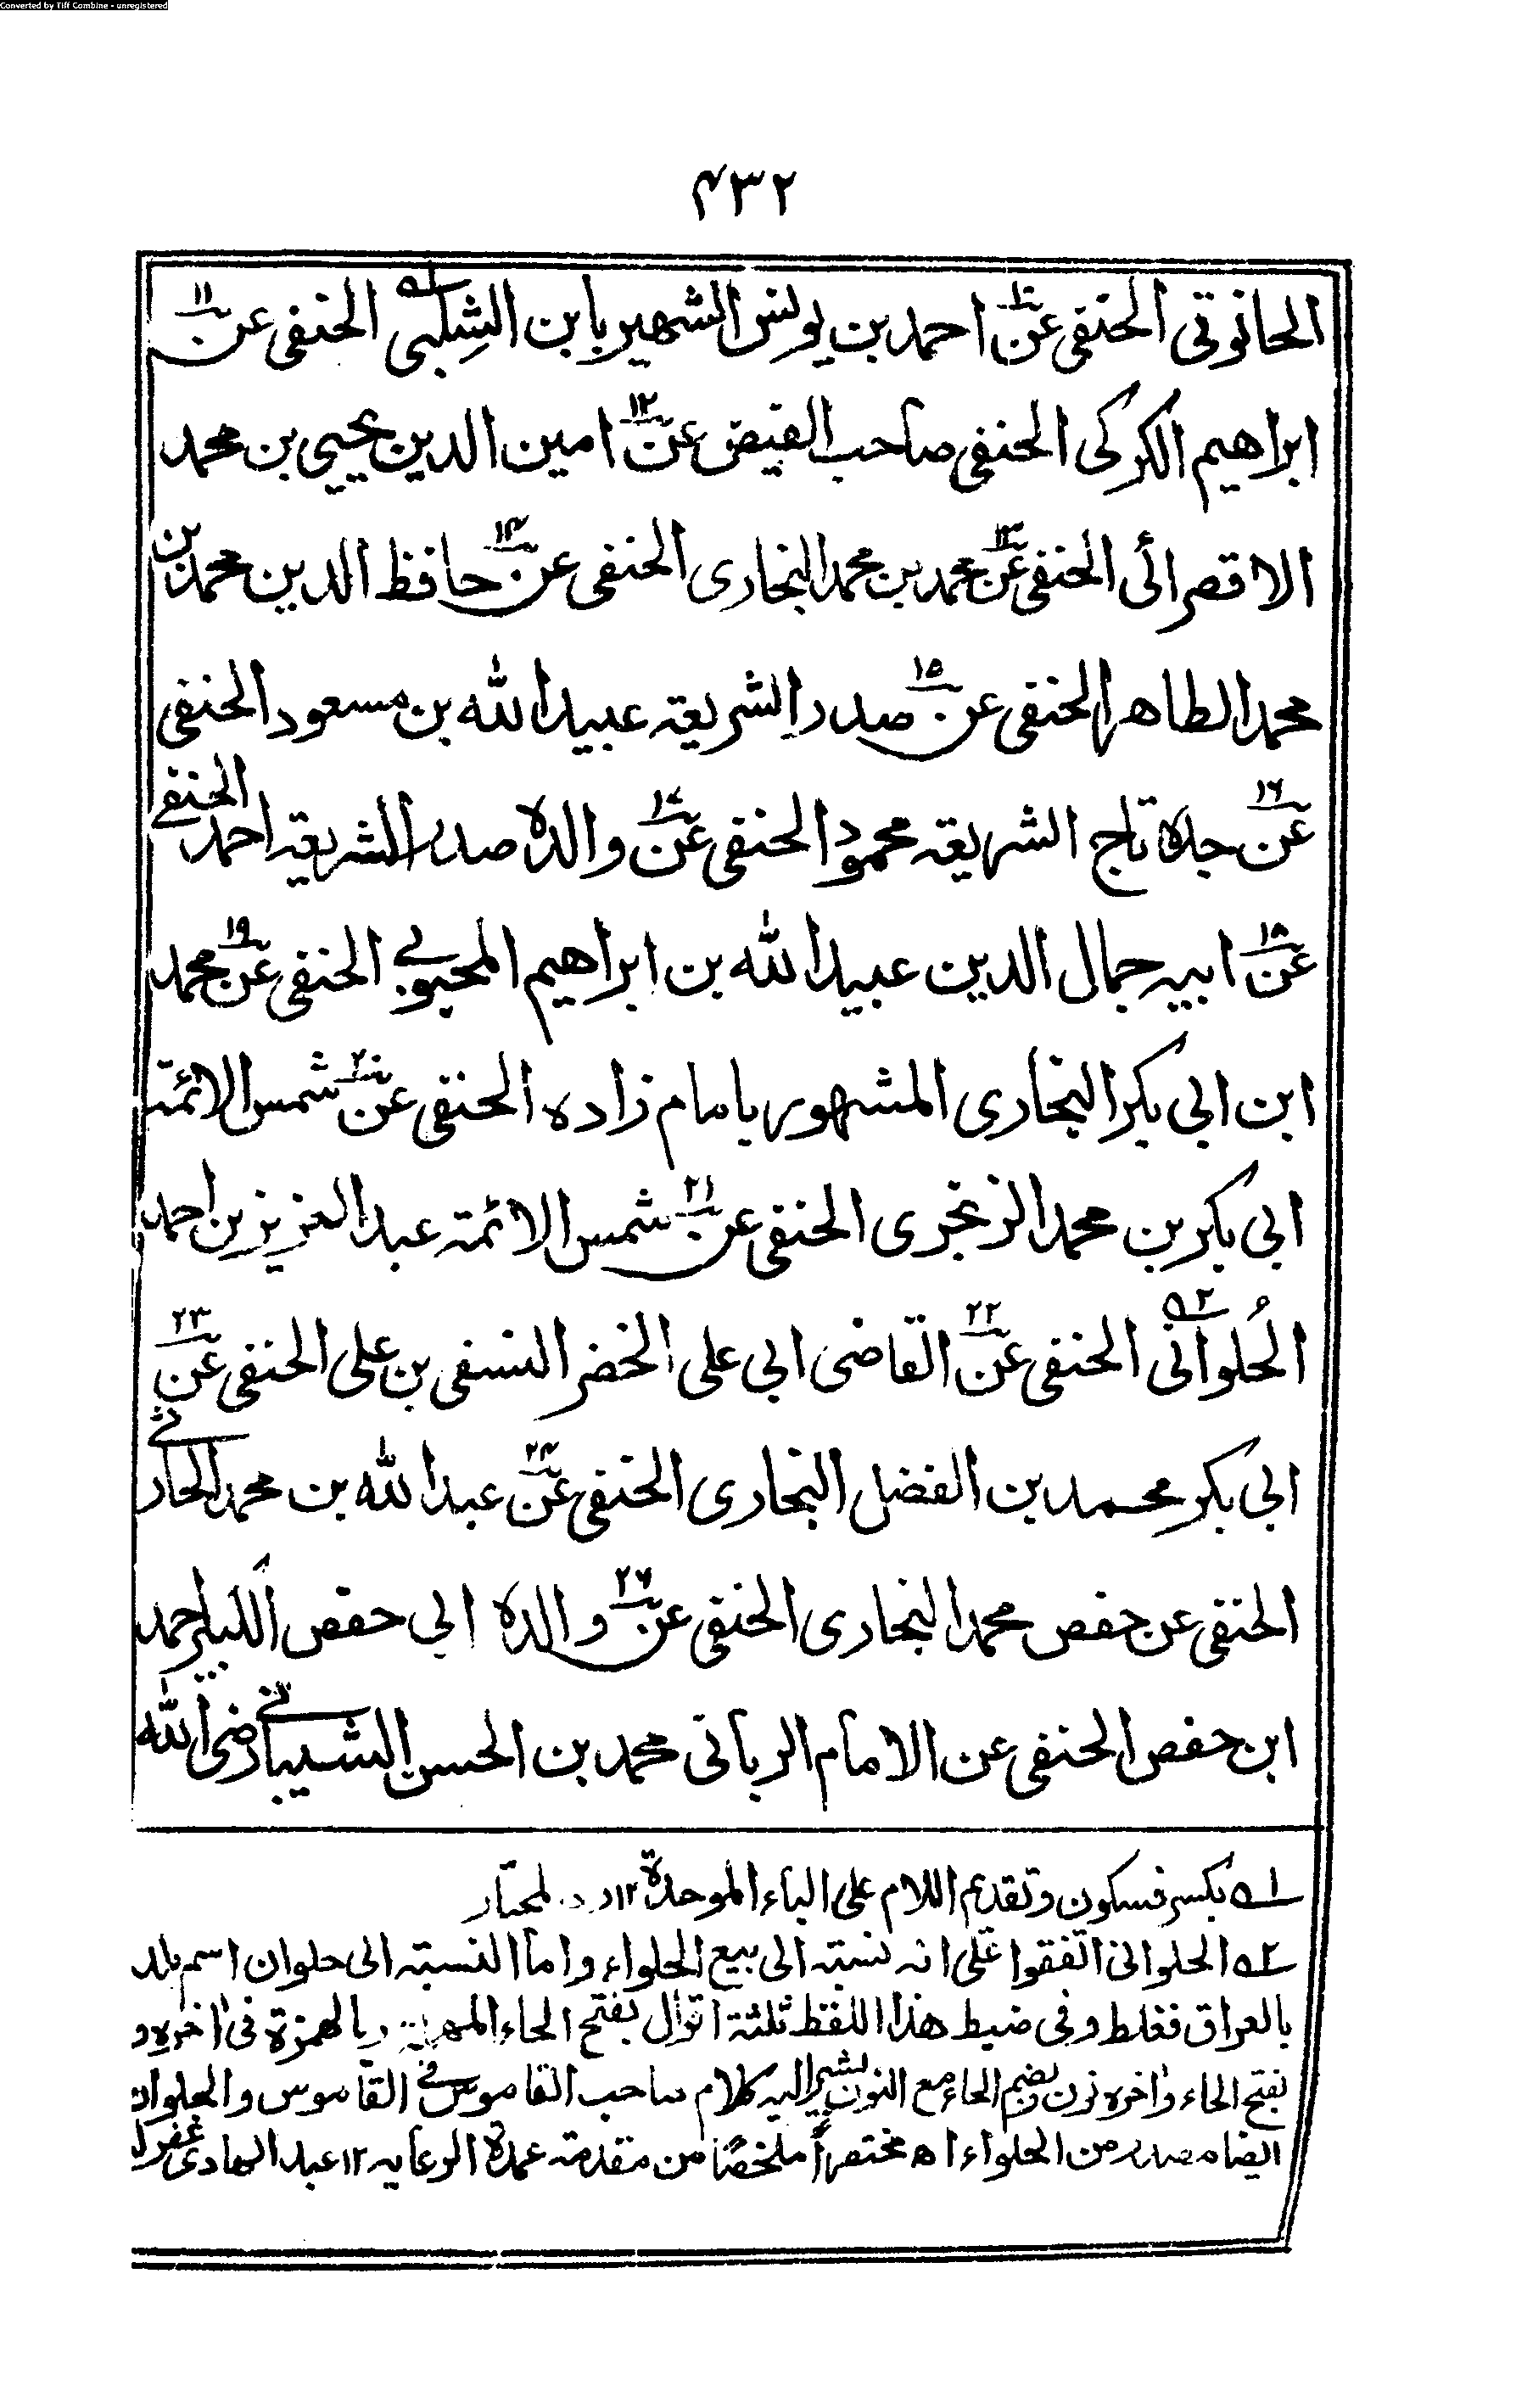 Converted by Tiff Combine - unregistered
۴۳۲
الحانوتی الحنفی عن۱۰ احمد بن یونس الشهیر بابن الشِلبی۱ الحنفی عن۱۱
ابراهیم الکرکی الحنفی صاحب الفیض عن۱۲ امین الدین یحیی بن محمد
الاقصرائی الحنفی عن۱۳ محمد بن محمد البخاری الحنفی عن۱۴ حافظ الدین محمد بن
محمد الطاهر الحنفی عن۱۵ صدر الشریعہ عبید الله بن مسعود الحنفی
عن۱۶ جدہ تاج الشریعہ محمود الحنفی عن۱۷ والدہ صدر الشریعہ احمد الحنفی
عن۱۸ ابیہ جمال الدین عبید الله بن ابراهیم المحبوبی الحنفی عن۱۹ محمد
ابن ابی بکر البخاری المشهور بامام زادہ الحنفی عن۲۰ شمس الائمۃ
ابی بکر بن محمد الزنجری الحنفی عن۲۱ شمس الائمۃ عبد العزیز بن احمد
الحُلوانی۲ الحنفی عن۲۲ القاضی ابی علی الخضر النسفی بن علی الحنفی عن۲۳
ابی بکر محمد بن الفضل البخاری الحنفی عن۲۴ عبد الله بن محمد الحارثی
الحنفی عن حفص محمد البخاری الحنفی عن۲۶ والدہ ابی حفص الکبیر احمد
ابن حفص الحنفی عن الامام الربانی محمد بن الحسن الشیبانی رضی الله
۱ بکسر فسکون وتقدیم اللام علی الباء الموحدۃ ۱۲
۲ الحلوانی اتفقوا علی انہ نسبتہ الی بیع الحلواء واما النسبتہ الی حلوان اسم بلد
بالعراق فغلط وفی ضبط هذا اللفظ ثلثۃ اقوال بفتح الحاء المهملۃ وبالهمزۃ فی اٰخرہ و
بفتح الحاء واٰخرہ نون وبضم الحاء مع النون یشیر الیہ کلام صاحب القاموس فی القاموس والحلوان
ایضا مصدر من الحلواء اھ مختصراً ملخصًا من مقدمۃ عمدۃ الرعایہ ۱۲ عبد الهادی غفرلہ